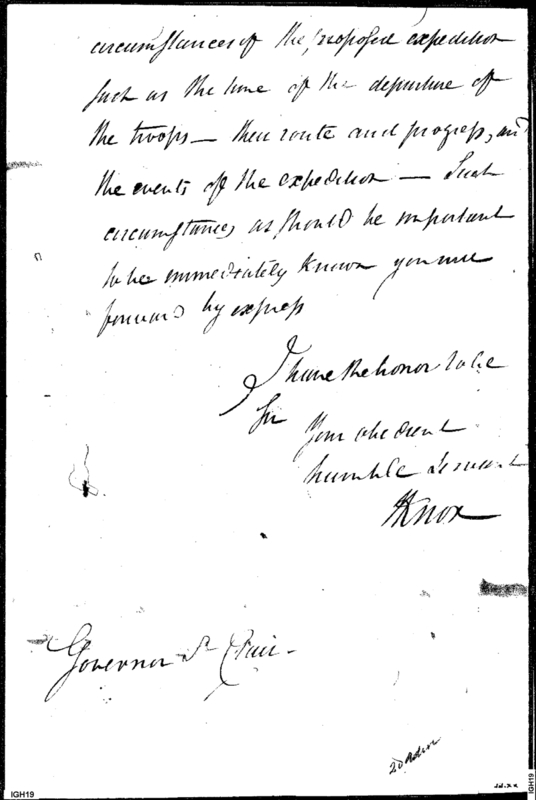 circumstances of the proposed expedition
such as the time of the departure of
the troops — their route and progress, and
the events of the expedition — Such
circumstances, as should be important
to be immediately known you will
forward by express
I have the honor to be
Sir
Your obedient
humble Servant
HKnox
Governor St Clair -
IGH19
IGH19